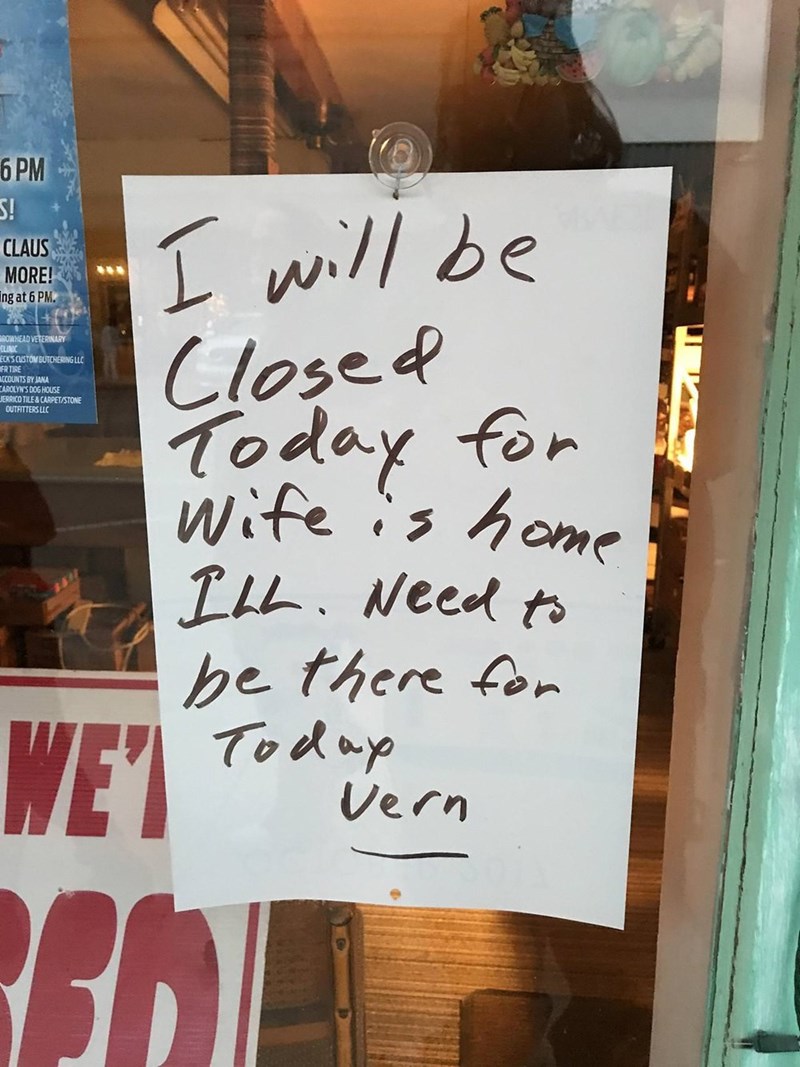 6 PM
S!
CLAUS
MORE!
ing at 6 PM.
ROWHEAD VETERINARY
CLINIC
ECK'S CUSTOM BUTCHERING LLC
FR TIRE
ACCOUNTS BY JANA
CAROLYN'S DOG HOUSE
JERRICO TILE & CARPET/STONE
OUTFITTERS LLC
I will be
Closed
Today for
Wife is home
ILL. Need to
be there for
Today
Vern
WE'
SED